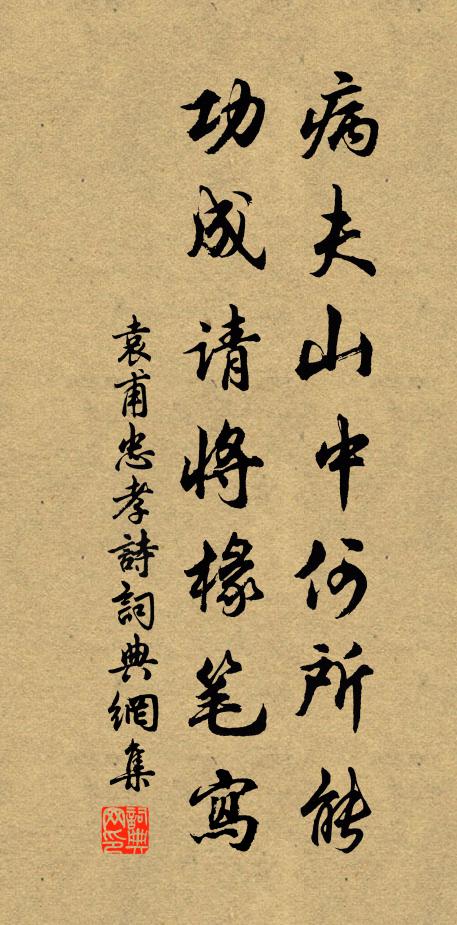 病夫山中何所能
功成请将椽笔寫
袁甫忠孝詩詞典網集
詞典网印